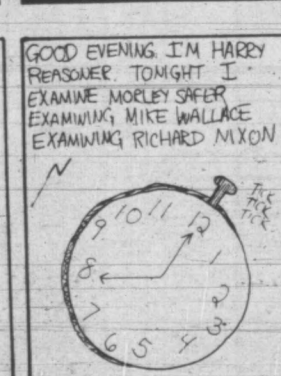 GOOD EVENING. I'M HARRY
REASONER. TONIGHT I
EXAMINE MORLEY SAFER
EXAMINING MIKE WALLACE
EXAMINING RICHARD NIXON
TICK
TICK
TICK
12
1
2
3
4
5
6
7
8
9
10
11